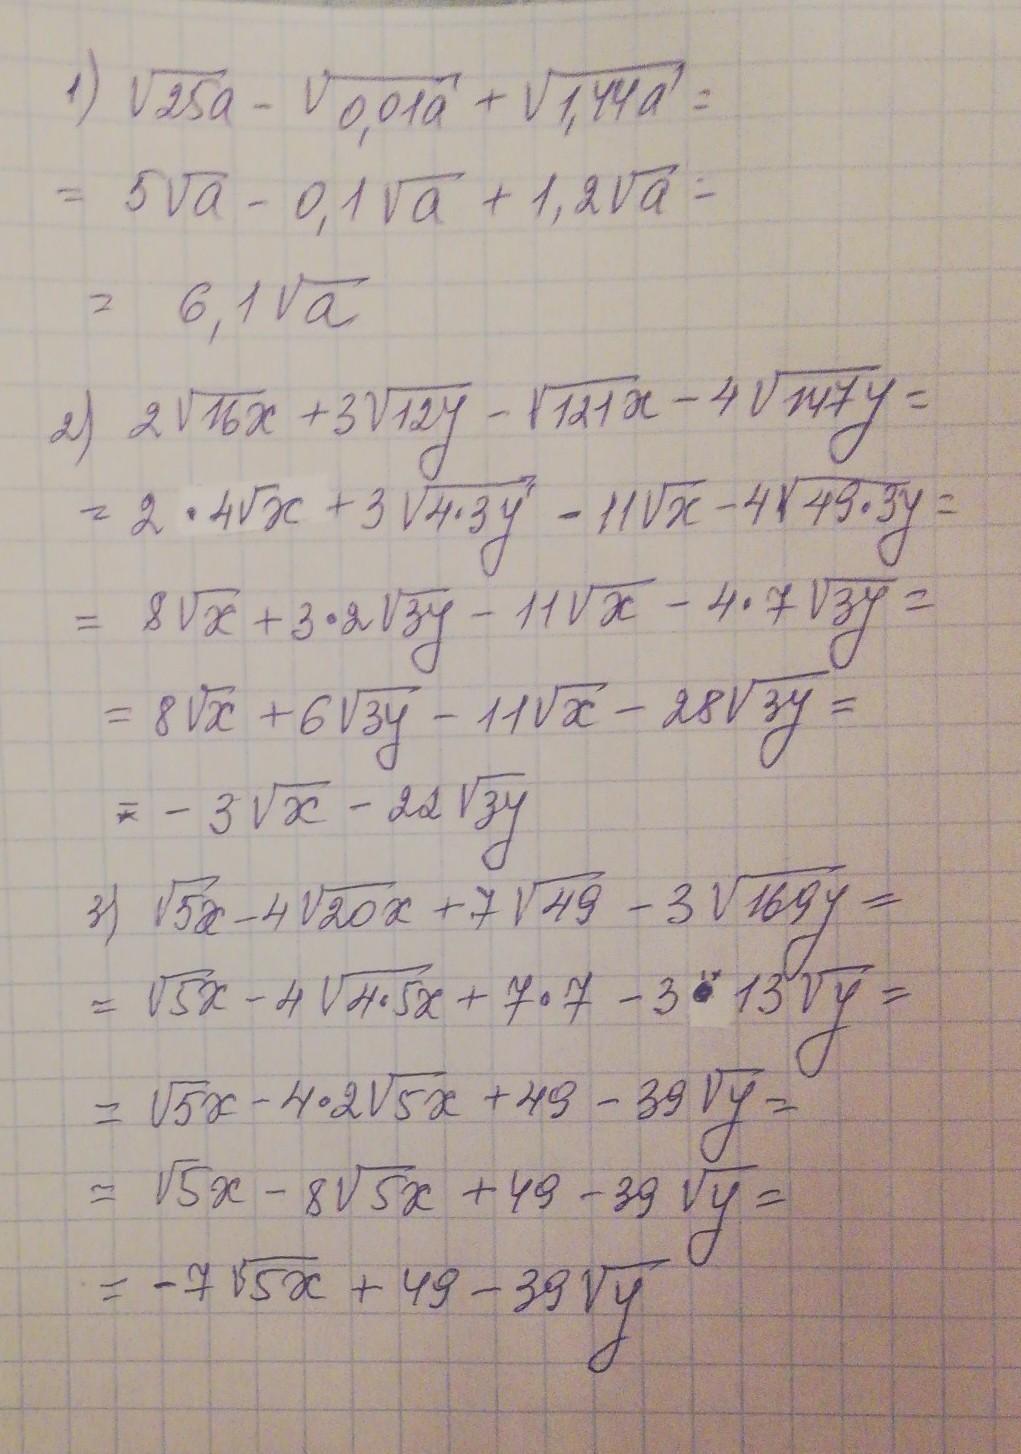 1) √25a - √0,01a + √1,44a =
= 5√a - 0,1√a + 1,2√a =
= 6,1√a
2) 2√16x + 3√12y - √121x - 4√147y =
= 2 · 4√x + 3√4·3y - 11√x - 4√49·3y =
= 8√x + 3·2√3y - 11√x - 4·7√3y =
= 8√x + 6√3y - 11√x - 28√3y =
= - 3√x - 22√3y
3) √5x - 4√20x + 7√49 - 3√169y =
= √5x - 4√4·5x + 7·7 - 3 · 13√y =
= √5x - 4·2√5x + 49 - 39√y =
= √5x - 8√5x + 49 - 39√y =
= -7√5x + 49 - 39√y